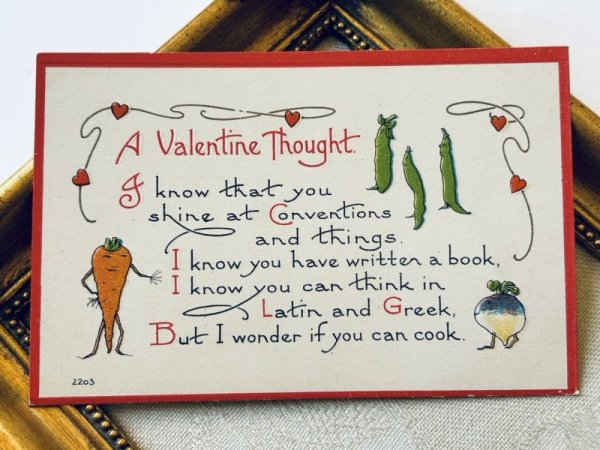 A Valentine Thought.
I know that you
shine at Conventions
and things.
I know you have written a book,
I know you can think in
Latin and Greek,
But I wonder if you can cook.
2203